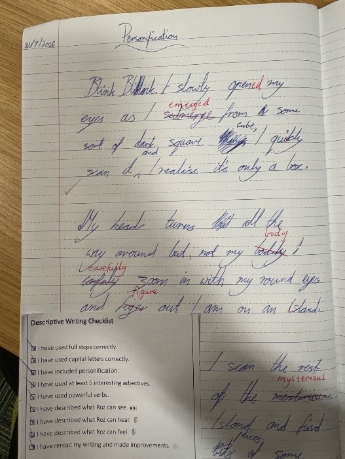 Personification
Blink Blink. I slowly opened my
emerged
eyes as I from some
cube,
sort of dark square I quickly
and
scan it, I realise it's only a box.
My head turns all the
body
way around but not my I
carefully
zoom in with my round eyes
figure
and out I am on an Island.
Descriptive Writing Checklist
I have used full stops correctly.
I have used capital letters correctly.
I have included personification.
I have used at least 5 interesting adjectives.
I have used powerful verbs.
I have described what Roz can see.
I have described what Roz can hear.
I have described what Roz can feel.
I have reread my writing and made improvements.
I scan the rest
mysterious
of the
Island and find
of some